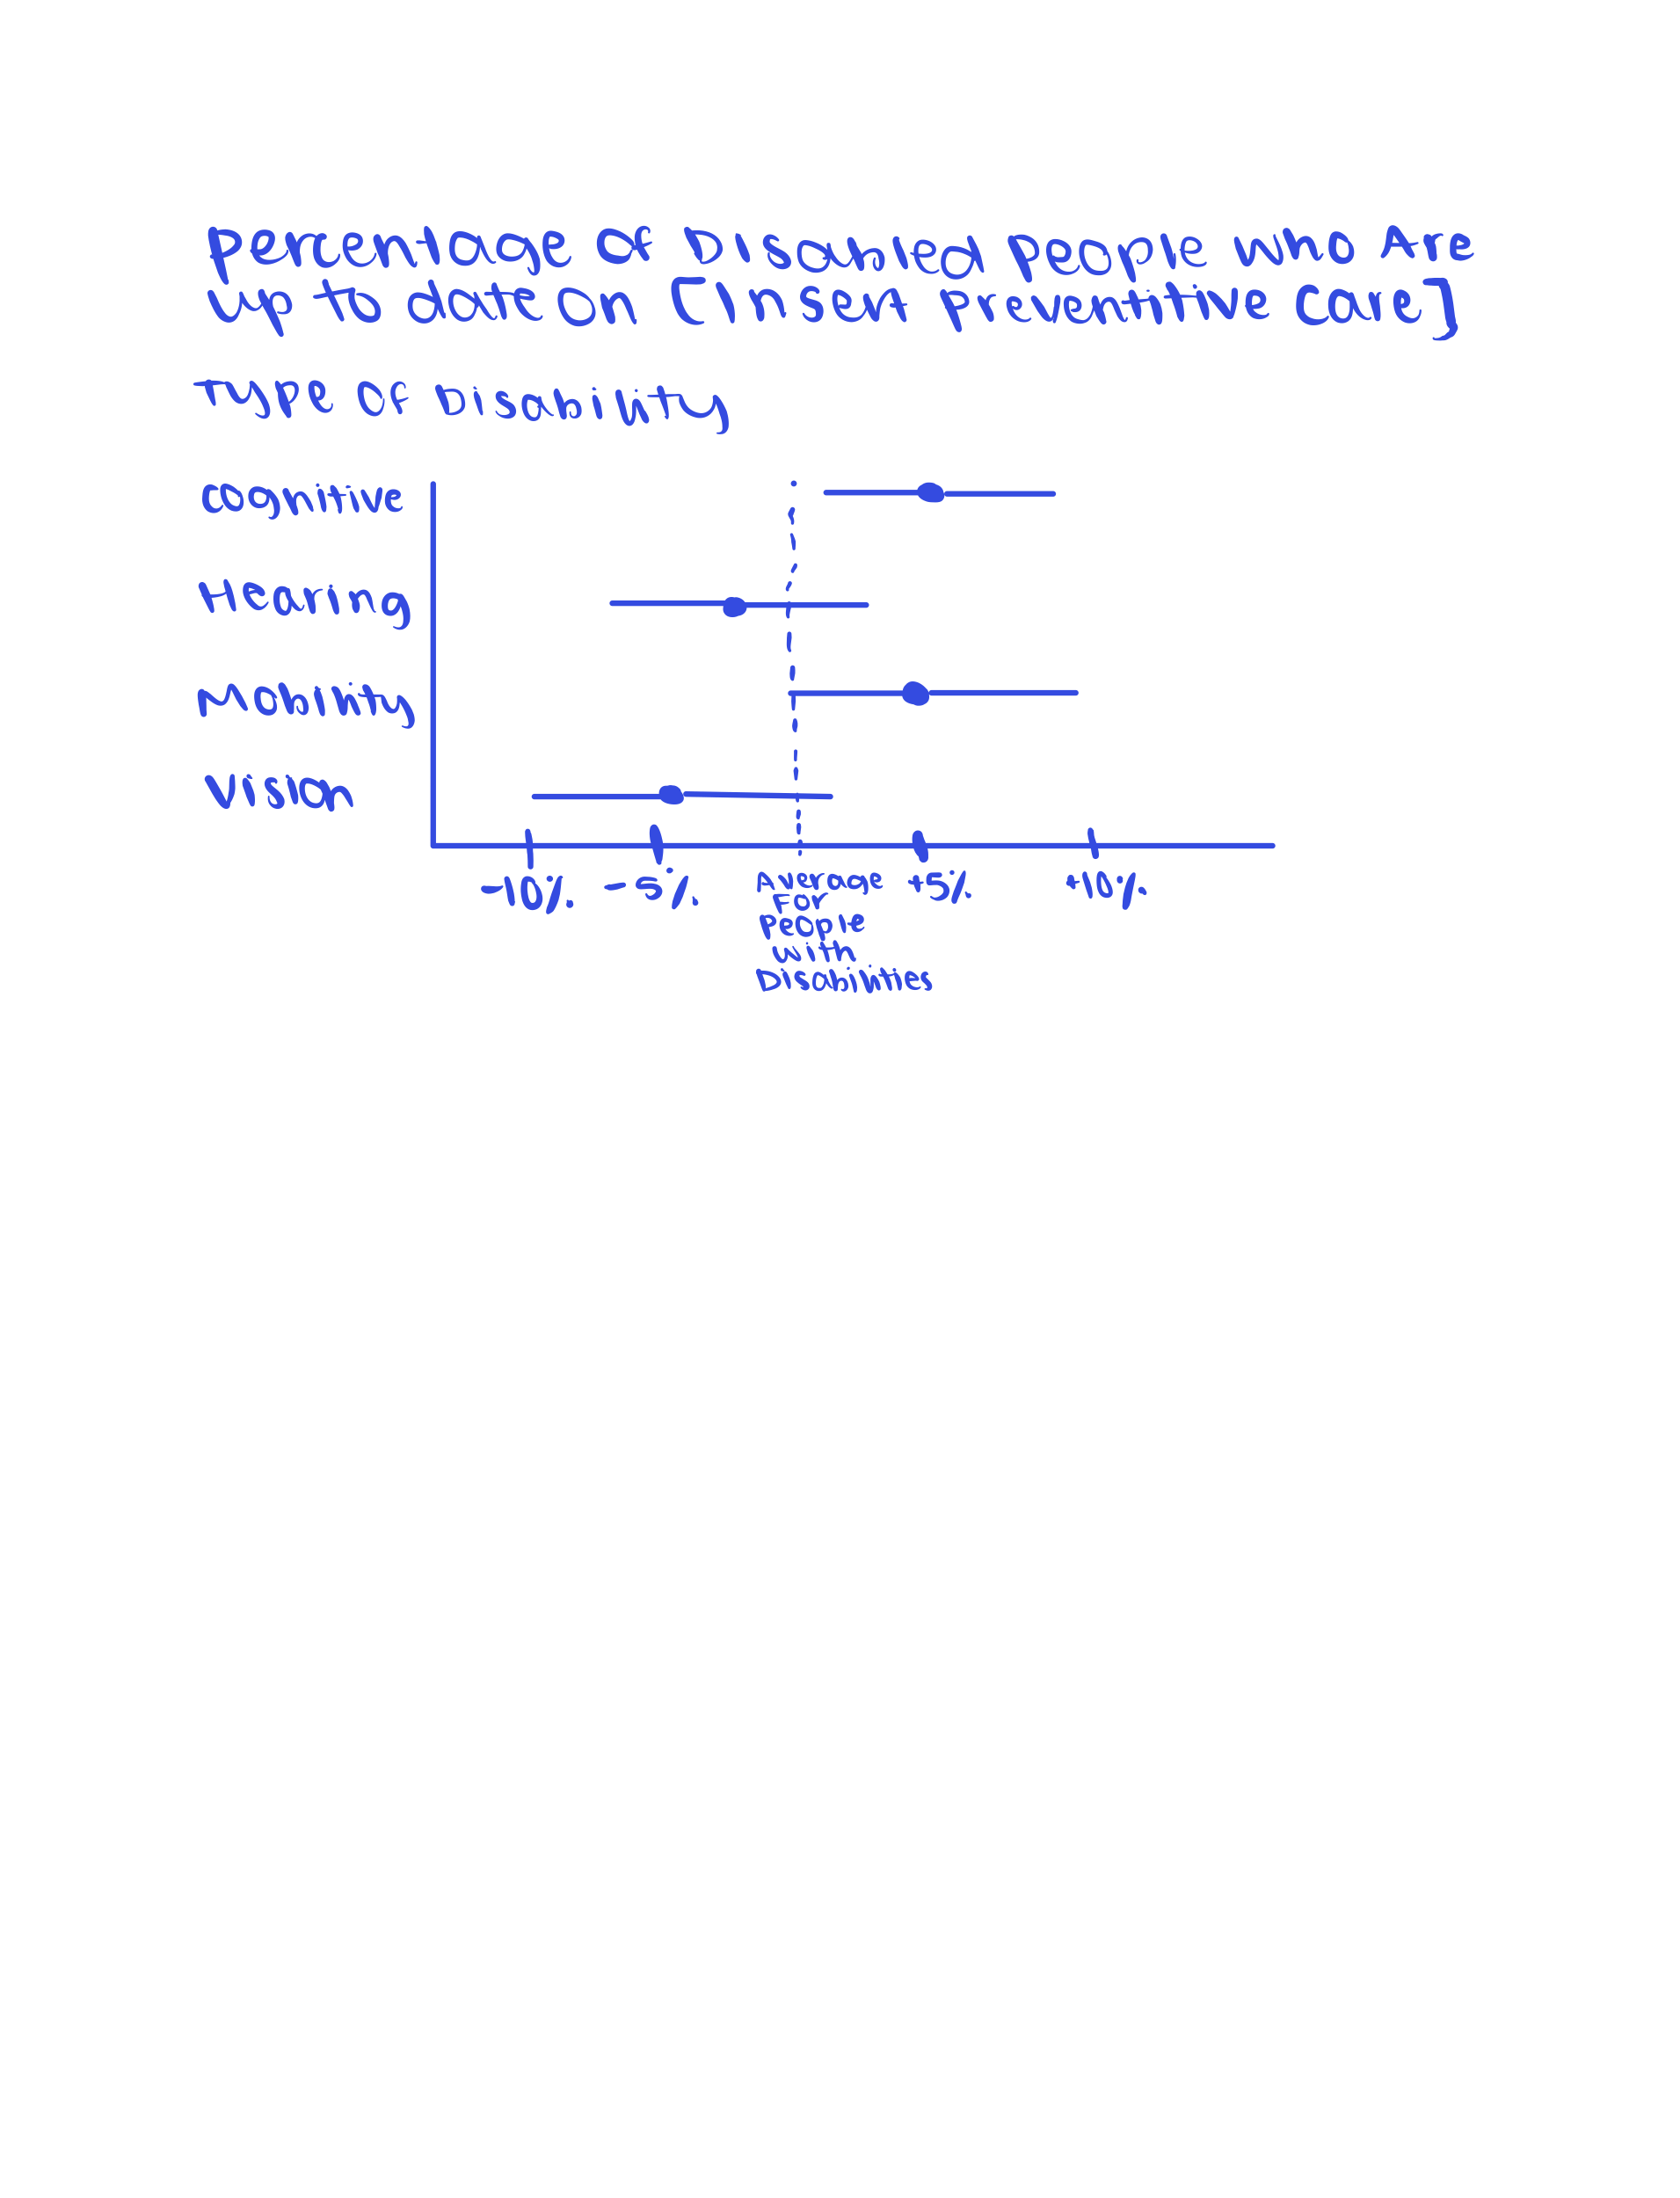 Percentage of Disabled People who Are
up to date on [Insert Preventitive Care]
Type Of Disability
Cognitive
Hearing
Mobility
Vision
-10%
-5%
Average
For
People
with
Disabilities
+5%
+10%